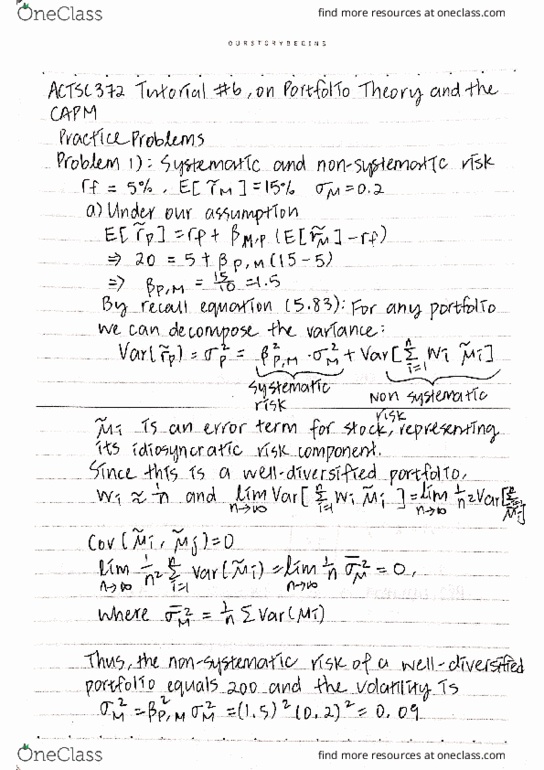 OneClass
find more resources at oneclass.com
OURSTORYBEGINS
ACTSC372 Tutorial #6, on Portfolio Theory and the
CAPM
Practice Problems
Problem 1): Systematic and non-systematic risk
rf = 5%, E[r̃M] = 15% σM = 0.2
a) Under our assumption
E[r̃p] = rf + βM,P (E[r̃M] - rf)
⇒ 20 = 5 + βP,M (15 - 5)
⇒ βP,M = 15/10 = 1.5
By recall equation (5.83): For any portfolio
we can decompose the variance:
Var(r̃p) = σ²P = β²P,M · σ²M + Var[Σⁿi=1 Wi μ̃i]
systematic risk
Non systematic risk
μ̃i is an error term for stock, representing
its idiosyncratic risk component.
Since this is a well-diversified portfolio,
Wi ≈ 1/n and lim n→∞ Var[Σⁿi=1 Wi μ̃i] = lim n→∞ 1/n² Var[Σⁿi=1 μ̃i]
Cov(μ̃i, μ̃j) = 0
lim n→∞ 1/n² Σⁿi=1 Var(μ̃i) = lim n→∞ 1/n σ̄²M = 0,
where σ̄²M = 1/n Σ Var(μi)
Thus, the non-systematic risk of a well-diversified
portfolio equals 200 and the volatility is
σ²M = β²P,M σ²M = (1.5)² (0.2)² = 0.09
OneClass
find more resources at oneclass.com